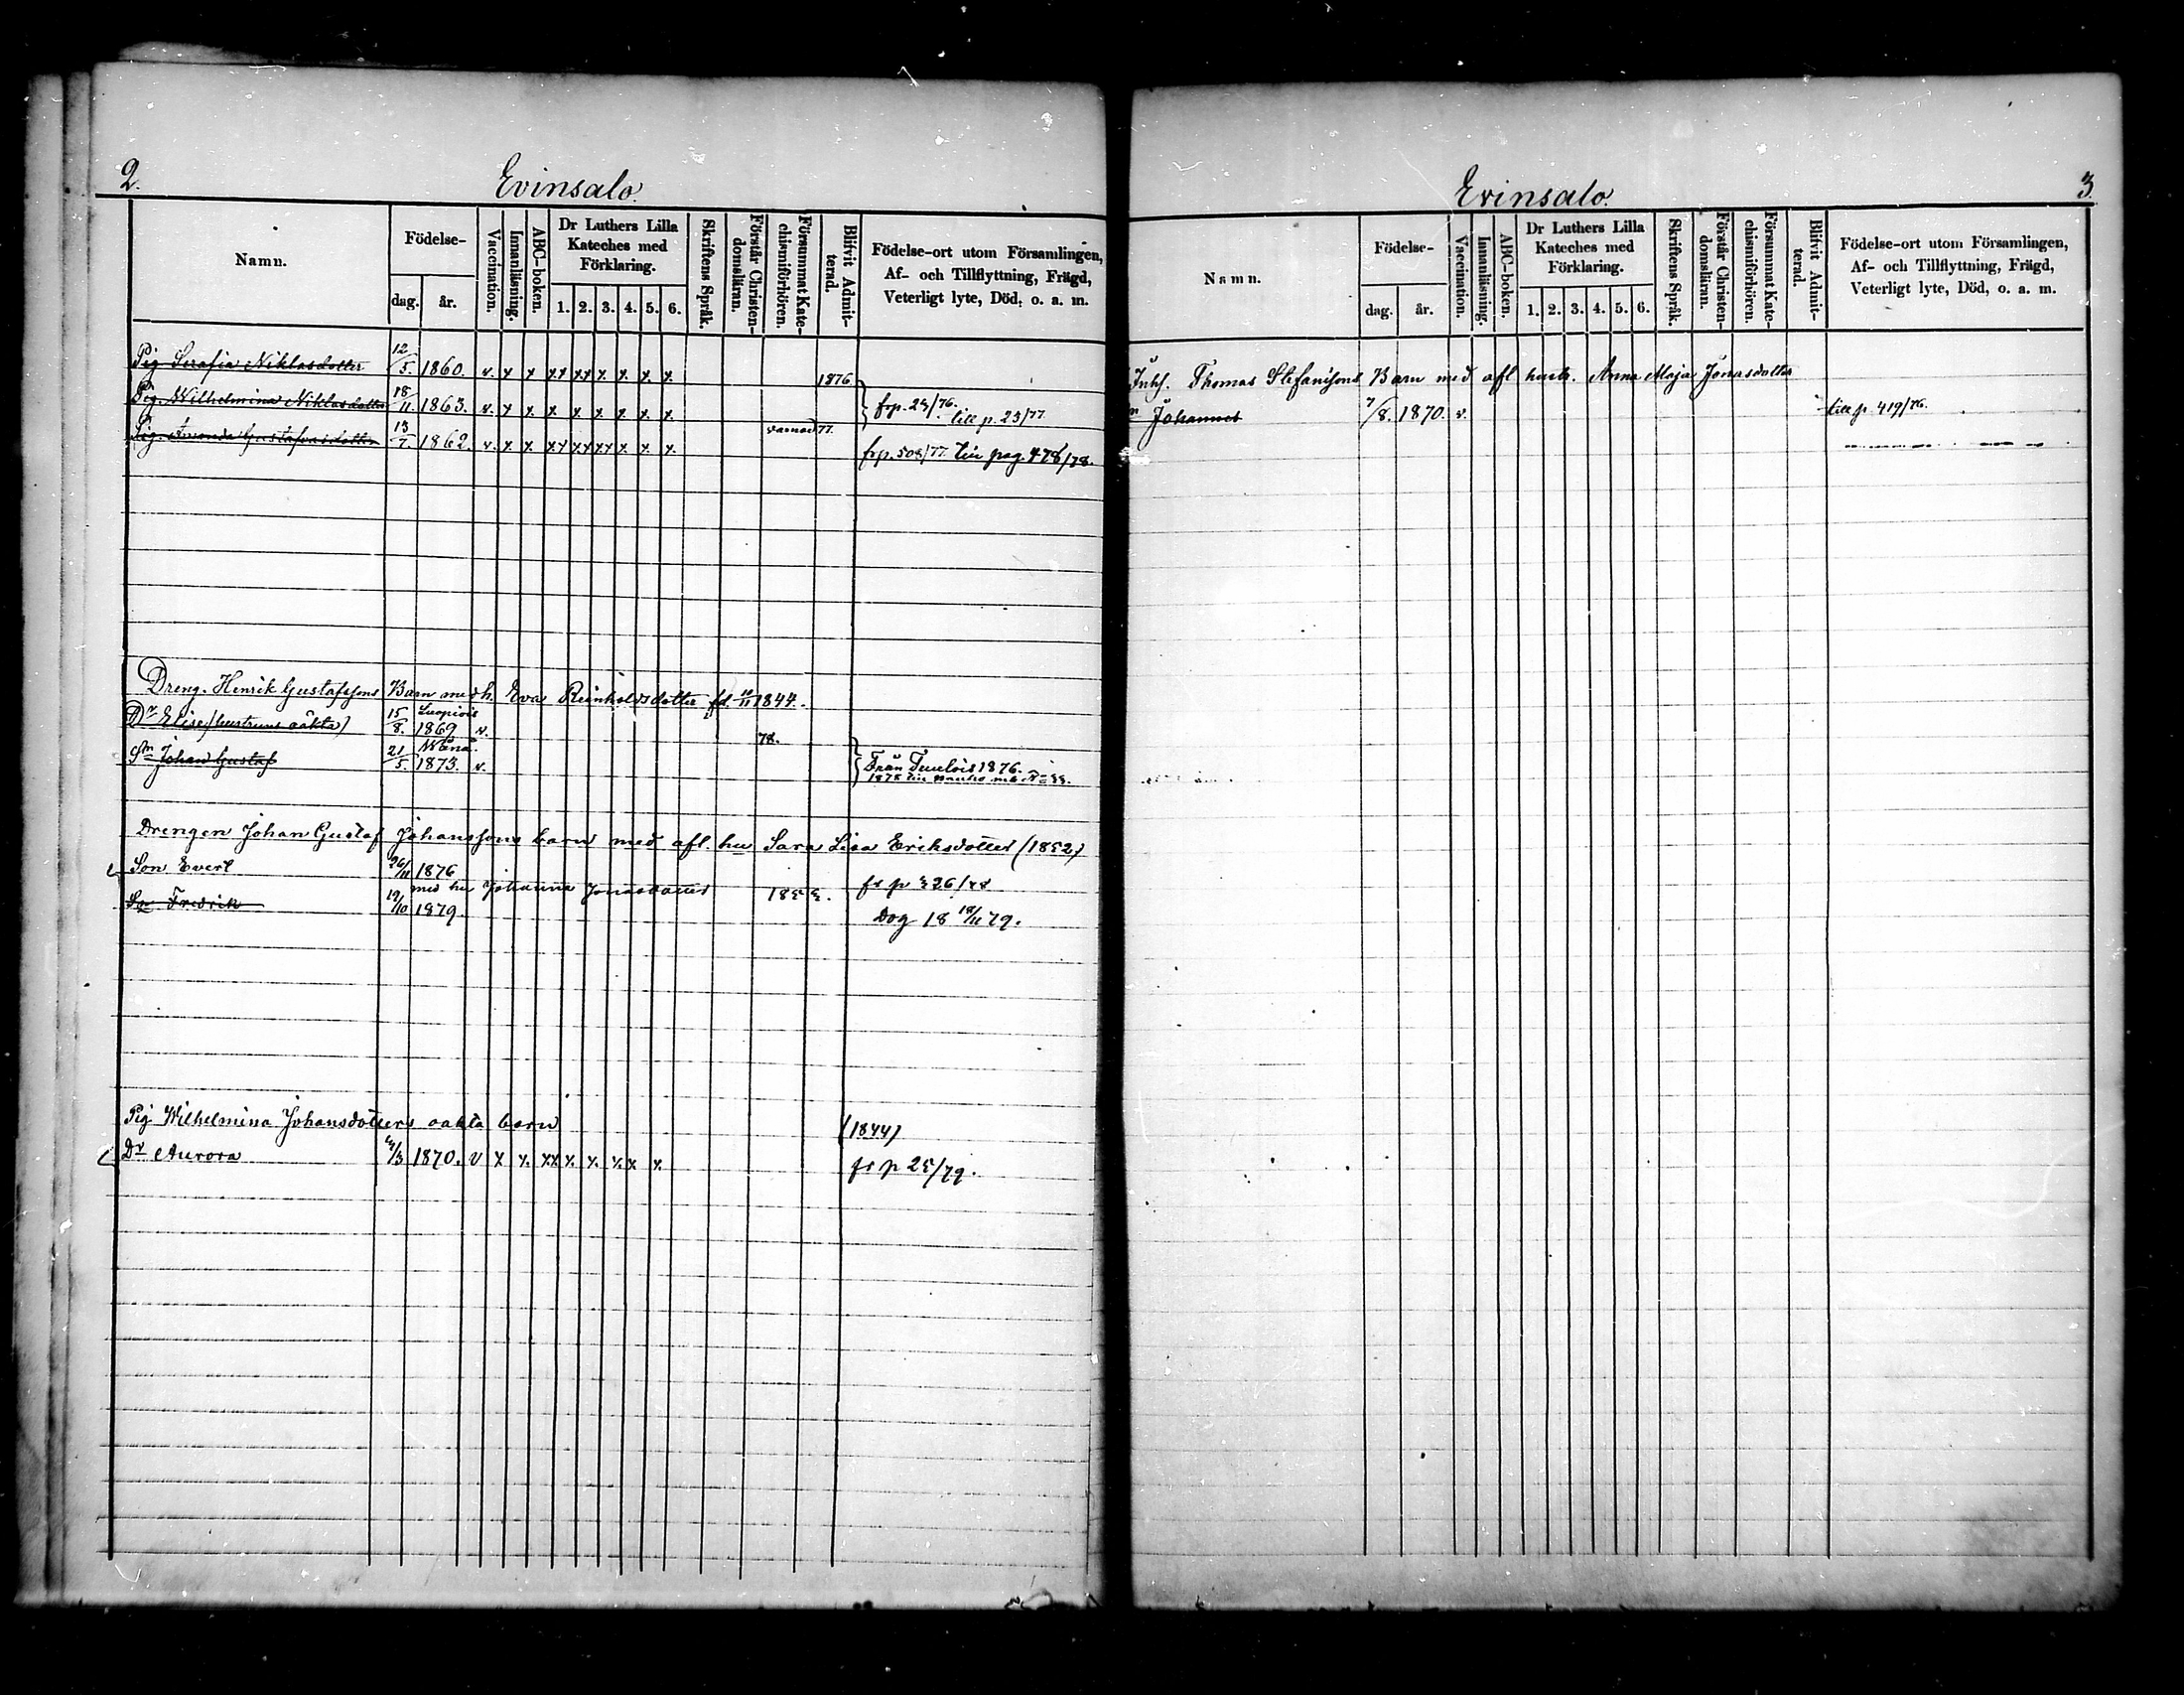 2.
Evinsalo.
Namn.
Födelse-
dag. år.
Vaccination.
Innanläsning.
ABC-boken.
Dr Luthers Lilla Kateches med Förklaring.
1. 2. 3. 4. 5. 6.
Skriftens Språk.
Förstår Christendomsläran.
Försummat Katechismiförhören.
Blifvit Admitterad.
Födelse-ort utom Församlingen, Af- och Tillflyttning, Frägd, Veterligt lyte, Död, o. a. m.
Pig Serafia Niklasdotter 12/5. 1860. v. x x xx xx x. x. x. x. 1876
Pig. Wilhelmina Niklasdotter 18/11 1863. v. x x. x. x. x. x. x. x. frp. 23/76. till p. 23/77
Pig. Amanda Gustafvasdotter 13/7. 1862. v. x x. xx xx xx x. x. x. 77. frp. 508/77. pag. 478/78.
Dreng. Henrik Gustafssons Barn med h. Eva Reinholdsdotter fd. 10/11 1844.
Luopiois
Dr Elise (hustruns oäkta) 15/8. 1869 v.
78.
Sn Johan Gustaf 21/5. 1873. v. Från Tuulois 1876.
Drengen Johan Gustaf Johanssons barn med afl. hu Sara Lisa Eriksdotter (1852)
Son Evert 26/11 1876 fr p
med hu Johanna Jonasdotter
Sn Fredrik 19/10 1879. Dog 18 18/11 79.
Pig Wilhelmina Johansdotters oäkta barn (1844)
Dr Aurora /3 1870. v x x. xx x. x. x. x x. fr p 25/79.
Evinsalo.
3.
Namn.
Födelse-
dag. år.
Vaccination.
Innanläsning.
ABC-boken.
Dr Luthers Lilla Kateches med Förklaring.
1. 2. 3. 4. 5. 6.
Skriftens Språk.
Förstår Christendomsläran.
Försummat Katechismiförhören.
Blifvit Admitterad.
Födelse-ort utom Församlingen, Af- och Tillflyttning, Frägd, Veterligt lyte, Död, o. a. m.
Inhs. Thomas Stefanssons Barn med afl hustr. Anna Maja Jonasdotter
Johannes 7/8. 1870. v. till p. 419/76.